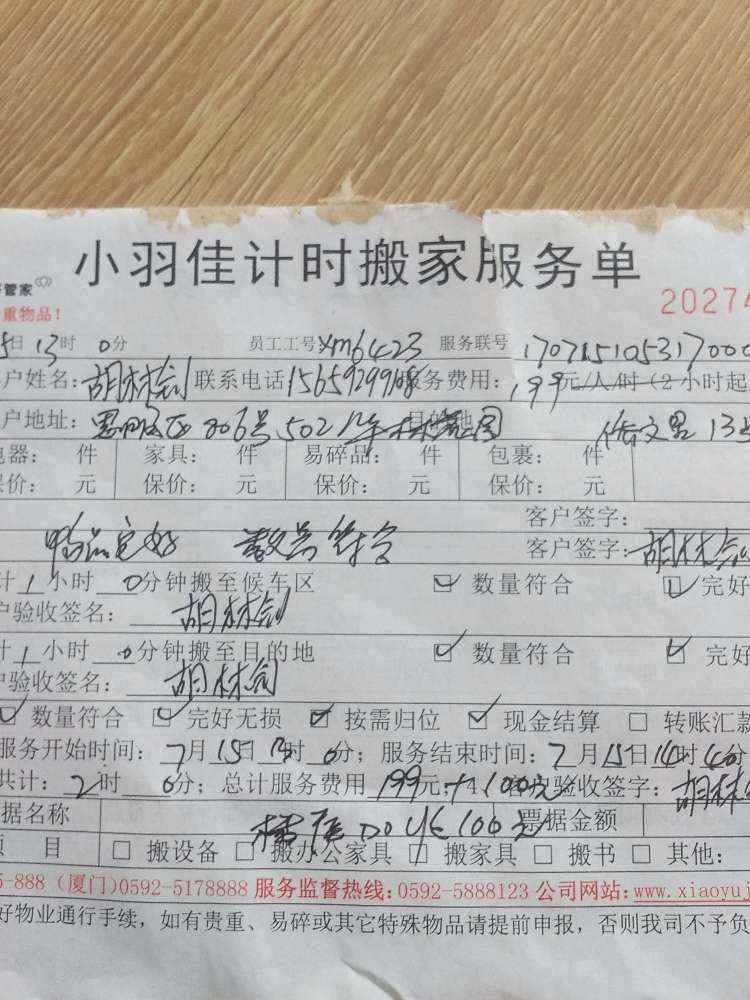 小羽佳计时搬家服务单
管家
重物品!
20274
5日13时0分 员工工号xm6423 服务联号
户姓名:胡林剑 联系电话 服务费用:199元/人/时(2小时起
户地址:思明区 806号502 目的地
电器: 件 家具: 件 易碎品: 件 包裹: 件
保价: 元 保价: 元 保价: 元 保价: 元
客户签字:
物品完好 数量符合 客户签字:胡林剑
计1小时0分钟搬至候车区 数量符合 完好
户验收签名:胡林剑
计1小时0分钟搬至目的地 数量符合 完好
户验收签名:胡林剑
数量符合 完好无损 按需归位 现金结算 转账汇款
服务开始时间:7月15日 时0分;服务结束时间:7月15日14时 分
共计:2时0分;总计服务费用199元 +100元 验收签字:胡林剑
据名称 100元 票据金额
项 目 搬设备 搬办公家具 搬家具 搬书 其他:
5-888 (厦门)0592-5178888 服务监督热线:0592-5888123 公司网站:www.xiaoyuj
好物业通行手续,如有贵重、易碎或其它特殊物品请提前申报,否则我司不予负